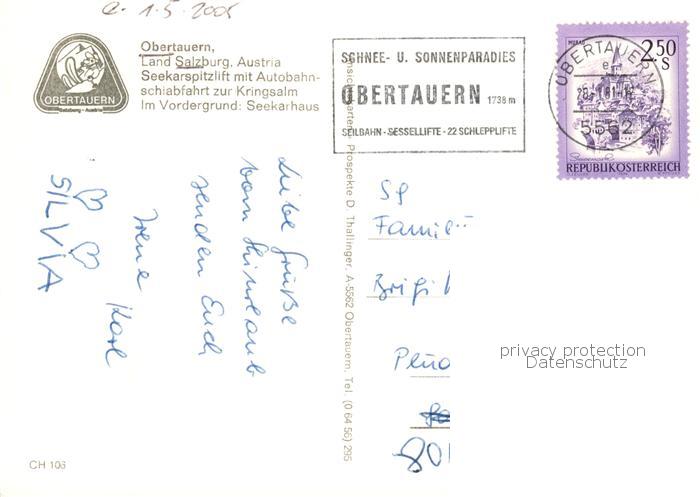 e. 1.5.2005
OBERTAUERN
Salzburg - Austria
Obertauern,
Land Salzburg, Austria
Seekarspitzlift mit Autobahn-
schiabfahrt zur Kringsalm
Im Vordergrund: Seekarhaus
SCHNEE- U. SONNENPARADIES
OBERTAUERN 1738m
SEILBAHN - SESSELLIFTE - 22 SCHLEPPLIFTE
OBERTAUERN
5562
MURAU
2.50
S
Steiermark
REPUBLIK ÖSTERREICH
Liebe Grüße
vom Skiurlaub
senden Euch
Irene Karl
SILVIA
Ansichtskarten, Prospekte D. Thallinger, A-5562 Obertauern, Tel. (0 64 56) 295
Famil
Brigi
80
privacy protection
Datenschutz
CH 106